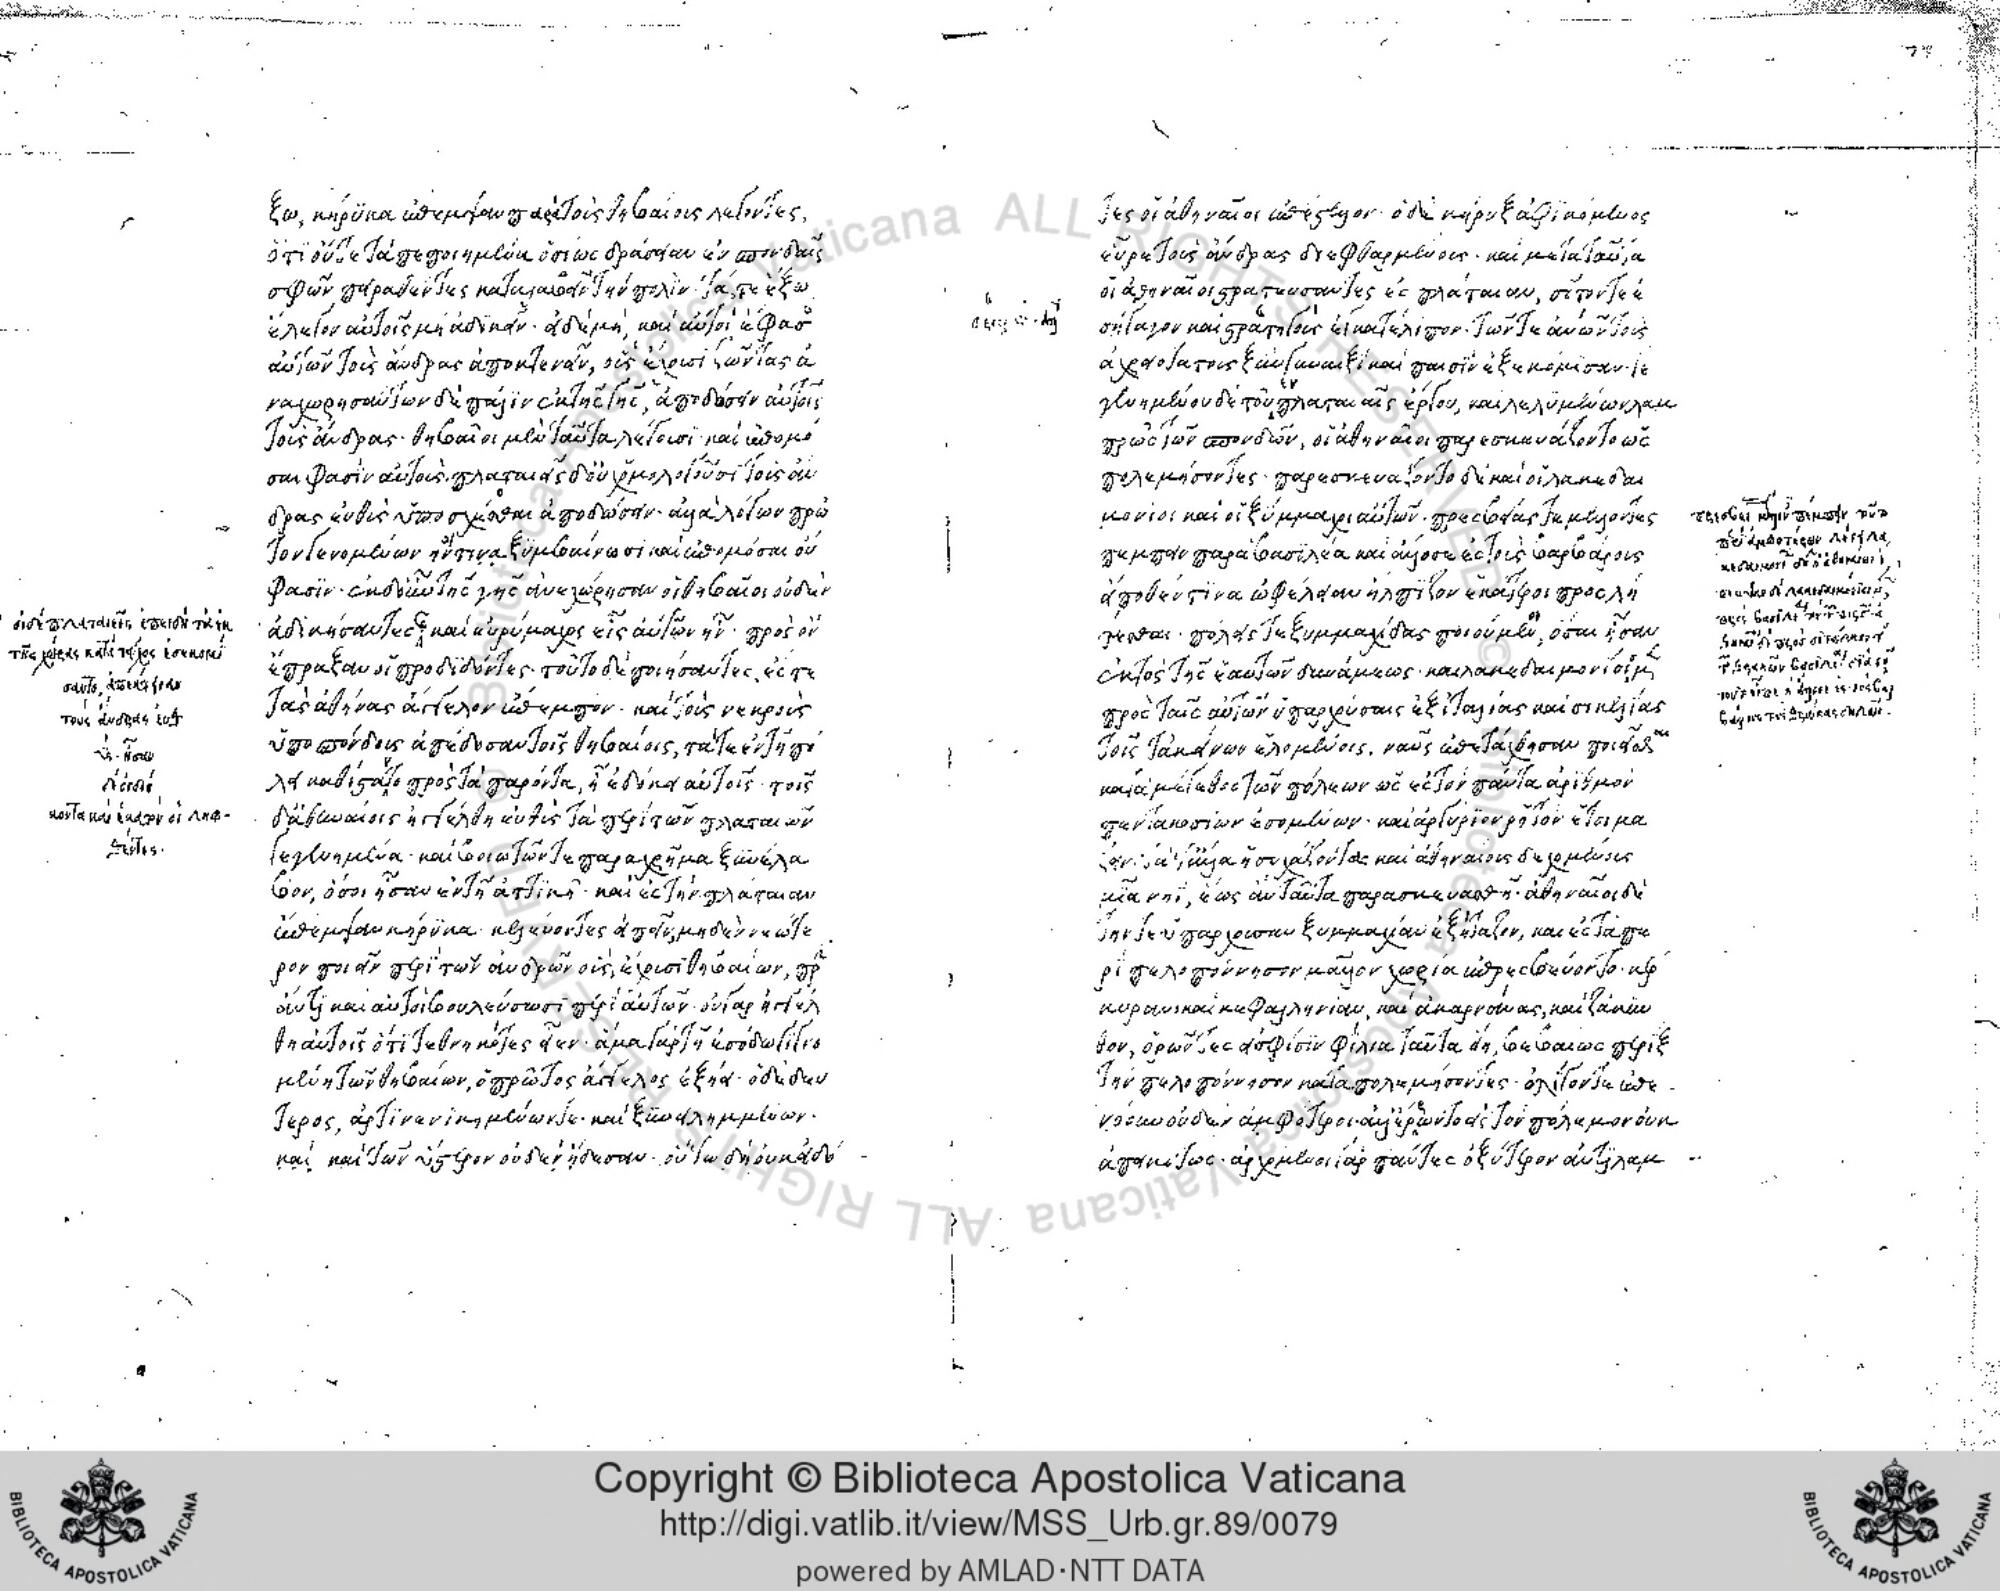 ξω, κήρυκα ἐπεμψαν παρὰ τοὺς θηβαίους λέγοντες,
ὅτι οὔτε τὰ πεποιημένα ὁσίως δράσειαν ἐν σπονδαῖς
σφῶν πειραθέντες καταλαβεῖν τὴν πόλιν· τά τε ἔξω
ἔλεγον αὐτοῖς μὴ ἀδικεῖν· εἰ δὲ μὴ, καὶ αὐτοὶ ἔφασαν
αὐτῶν τοὺς ἄνδρας ἀποκτενεῖν, οὓς ἔχουσι ζῶντας ἀ
ναχωρησάντων δὲ πάλιν ἐκ τῆς γῆς, ἀποδώσειν αὐτοῖς
τοὺς ἄνδρας· θηβαῖοι μὲν ταῦτα λέγουσι· καὶ ἐπομό
σαι φασὶν αὐτούς· πλαταιεῖς δ' οὐχ ὁμολογοῦσι τοὺς ἄν
δρας εὐθὺς ὑποσχέσθαι ἀποδώσειν· ἀλλὰ λόγων πρῶ
τον γενομένων ἤν τι ξυμβαίνωσι καὶ ἐπομόσαι οὔ
φασιν· ἐκ δ' οὖν τῆς γῆς ἀνεχώρησαν οἱ θηβαῖοι οὐδὲν
ἀδικήσαντες καὶ εὐρύμαχος εἷς αὐτῶν ἦν· πρὸς ὃν
ἔπραξαν οἱ προδιδόντες· τοῦτο δὲ ποιήσαντες, ἔς τε
τὰς ἀθήνας ἄγγελον ἔπεμπον· καὶ τοὺς νεκροὺς
ὑποσπόνδους ἀπέδοσαν τοῖς θηβαίοις, τά τε ἐν τῇ πό
λει καθίσταντο πρὸς τὰ παρόντα, ᾗ ἐδόκει αὐτοῖς· τοῖς
δ' ἀθηναίοις ἠγγέλθη εὐθὺς τὰ περὶ τῶν πλαταιῶν
γεγενημένα· καὶ βοιωτῶν τε παραχρῆμα ξυνέλα
βον, ὅσοι ἦσαν ἐν τῇ ἀττικῇ· καὶ ἐς τὴν πλάταιαν
ἔπεμψαν κήρυκα κελεύοντες εἰπεῖν μηδὲν νεώτε
ρον ποιεῖν περὶ τῶν ἀνδρῶν οὓς ἔχουσι θηβαίων, πρὶν
ἄν τι καὶ αὐτοὶ βουλεύσωσι περὶ αὐτῶν· οὐ γὰρ ἠγγέλ
θη αὐτοῖς ὅτι τεθνηκότες εἶεν· ἅμα γὰρ τῇ ἐσόδῳ γιγνο
μένῃ τῶν θηβαίων, ὁ πρῶτος ἄγγελος ἐξῄει· ὁ δὲ δεύ
τερος, ἄρτι νενικημένων τε καὶ ξυνειλημμένων·
καὶ τῶν ὕστερον οὐδὲν ᾔδεσαν· οὕτω δὴ οὐκ εἰδό
τες οἱ ἀθηναῖοι ἐπέστελλον· ὁ δὲ κήρυξ ἀφικόμενος
εὗρε τοὺς ἄνδρας διεφθαρμένους· καὶ μετὰ ταῦτα
οἱ ἀθηναῖοι στρατεύσαντες ἐς πλάταιαν, σῖτόν τε ἐ
σήγαγον καὶ φρουροὺς ἐγκατέλιπον· τῶν τε ἀνθρώπων τοὺς
ἀχρειοτάτους ξὺν γυναιξὶ καὶ παισὶν ἐξεκόμισαν· γε
γενημένου δὲ τοῦ ἐν πλαταιαῖς ἔργου, καὶ λελυμένων λαμ
πρῶς τῶν σπονδῶν, οἱ ἀθηναῖοι παρεσκευάζοντο ὡς
πολεμήσοντες· παρεσκευάζοντο δὲ καὶ οἱ λακεδαι
μόνιοι καὶ οἱ ξύμμαχοι αὐτῶν· πρεσβείας τε μέλλοντες
πέμπειν παρὰ βασιλέα καὶ ἄλλοσε ἐς τοὺς βαρβάρους
εἴ ποθέν τινα ὠφέλειαν ἤλπιζον ἑκάτεροι προσλή
ψεσθαι· πόλεις τε ξυμμαχίδας ποιούμενοι, ὅσαι ἦσαν
ἐκτὸς τῆς ἑαυτῶν δυνάμεως· καὶ λακεδαιμονίοις μὲν
πρὸς ταῖς αὐτῶν ὑπαρχούσαις ἐξ ἰταλίας καὶ σικελίας
τοῖς τἀκείνων ἑλομένοις, ναῦς ἐπετάχθησαν ποιεῖσθαι
κατὰ μέγεθος τῶν πόλεων ὡς ἐς τὸν πάντα ἀριθμὸν
πεντακοσίων ἐσομένων· καὶ ἀργύριον ῥητὸν ἑτοιμά
ζειν· τά τε ἄλλα ἡσυχάζοντας καὶ ἀθηναίους δεχομένους
μιᾷ νηΐ, ἕως ἂν ταῦτα παρασκευασθῇ· ἀθηναῖοι δὲ
τήν τε ὑπάρχουσαν ξυμμαχίαν ἐξήταζον, καὶ ἐς τὰ πε
ρὶ πελοπόννησον μᾶλλον χωρία ἐπρεσβεύοντο· κέρ
κυραν καὶ κεφαλληνίαν, καὶ ἀκαρνᾶνας, καὶ ζάκυν
θον, ὁρῶντες εἰ σφίσιν φίλια ταῦτα εἴη, βεβαίως πέριξ
τὴν πελοπόννησον καταπολεμήσοντες· ὀλίγον τε ἐπε
νόουν οὐδὲν ἀμφότεροι· ἀλλ' ἔρρωντο ἐς τὸν πόλεμον οὐκ
ἀπεικότως· ἀρχόμενοι γὰρ πάντες ὀξύτερον ἀντιλαμ
οἱ δὲ πλαταιεῖς ἐπειδὴ τὰ ἐκ
τῆς χώρας κατὰ τάχος ἐσεκομί
σαντο, ἀπέκτειναν
τοὺς ἄνδρας εὐθ
ὺς· ἦσαν
κοντα καὶ ἑκατὸν οἱ ληφ-
θέντες.
Copyright © Biblioteca Apostolica Vaticana
http://digi.vatlib.it/view/MSS_Urb.gr.89/0079
powered by AMLAD·NTT DATA
BIBLIOTECA APOSTOLICA VATICANA
BIBLIOTECA APOSTOLICA VATICANA